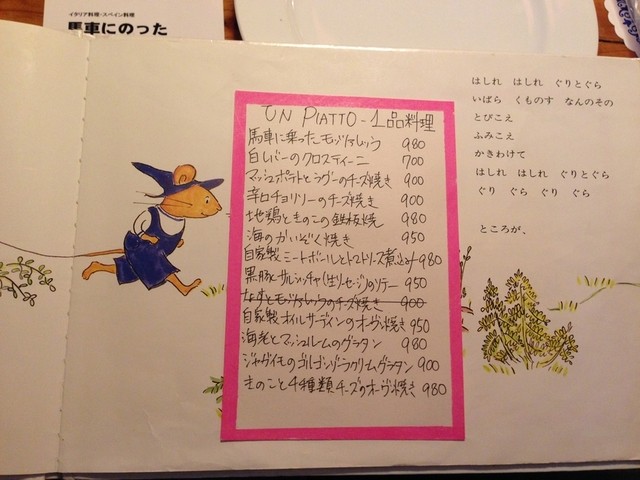 イタリア料理・スペイン料理
馬車にのった
はしれ はしれ ぐりとぐら
いばら くものす なんのその
とびこえ
ふみこえ
かきわけて
はしれ はしれ ぐりとぐら
ぐり ぐら ぐり ぐら
ところが、
UN PIATTO-1品料理
馬車に乗ったモッツァレッラ 980
白レバーのクロスティーニ 700
マッシュポテトとラグーのチーズ焼き 900
辛口チョリソーのチーズ焼き 900
地鶏ときのこの鉄板焼 980
海のかいぞく焼き 950
自家製ミートボールとトマトソース煮込み 980
黒豚サルシッチャ(生ソーセージ)のソテー 950
なすとモッツァレッラのチーズ焼き 900
自家製オイルサーディンのオーヴン焼き 950
海老とマッシュルームのグラタン 980
ジャガイモのゴルゴンゾーラクリームグラタン 900
きのこと4種類チーズのオーヴン焼き 980